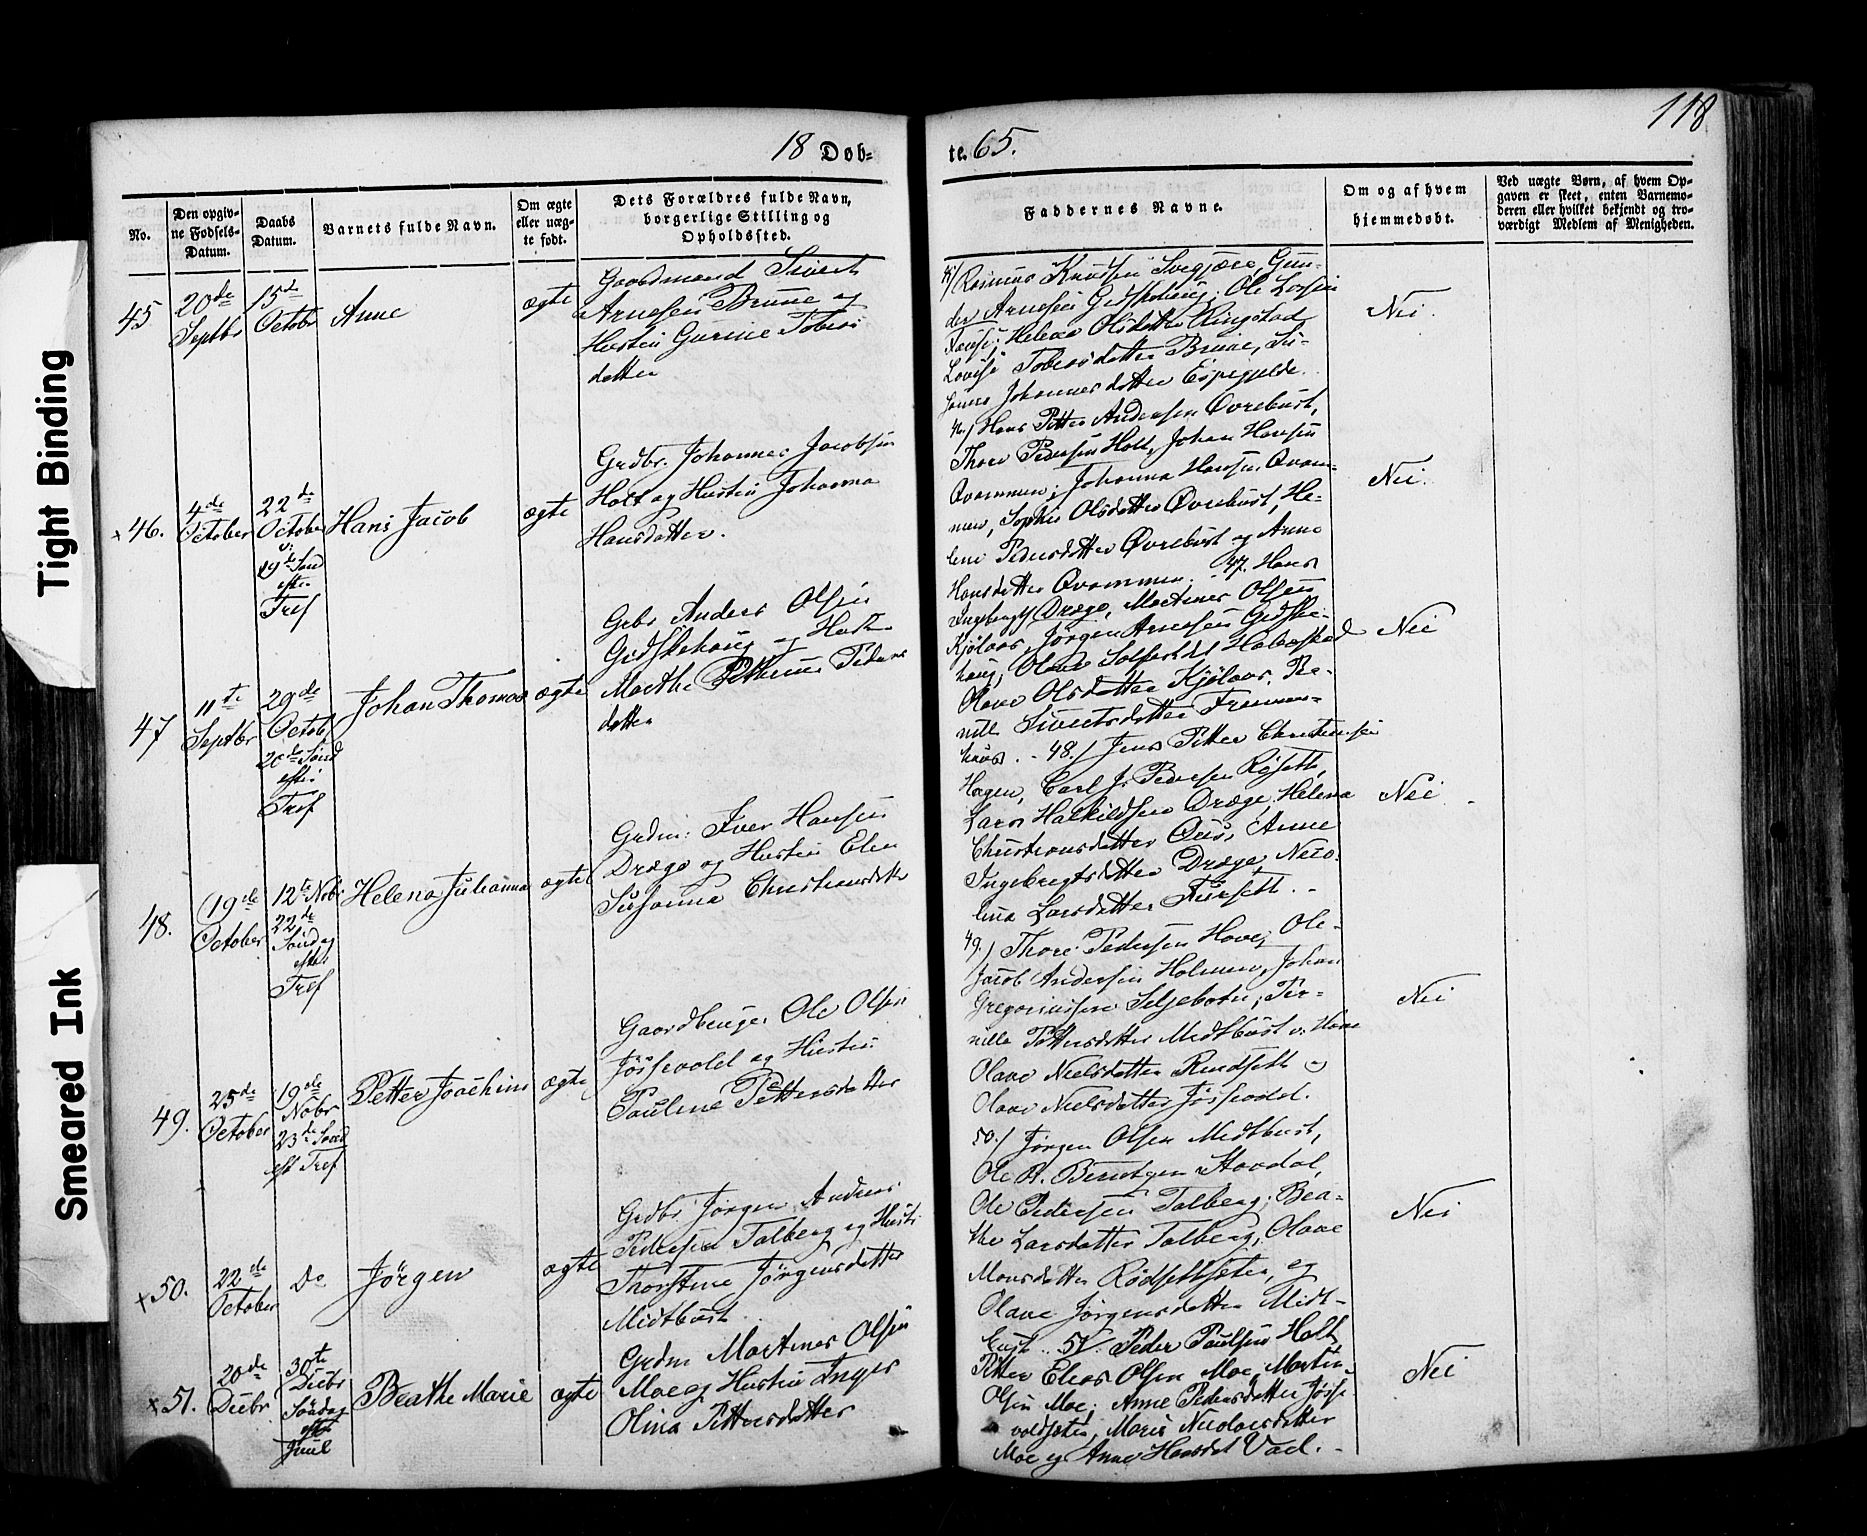 118
18 Døb=
te. 65.
No.
Den opgiv-
ne Fødsels-
Datum.
Daabs
Datum.
Barnets fulde Navn.
Om ægte
eller uæg-
te født.
Dets Forældres fulde Navn,
borgerlige Stilling og
Opholdssted.
Faddernes Navne.
Om og af hvem
hjemmedøbt.
Ved uægte Børn, af hvem Op-
gaven er skeet, enten Barnemo-
deren eller hvilket bekjendt og tro-
værdigt Medlem af Menigheden.
Tight Binding
Smeared Ink
45
20de
Septbr
15de
Octobr
Anne
ægte
Gaardmand Sivert
Arnesen Brune og
Hustru Gurine Tobias
datter
45/ Rasmus Knudsen Svegjære, Gun-
der Arnesen Gidskehaug; Ole Larsen
Helene Olsdatter Ringstad
Lovise Tobiasdatter Brune,
Johannesdatter Espegjelde.
Nei.
x46.
4de
October
22de
October
19de Sønd
efter
Tref
Hans Jacob
ægte
Grdbr. Johannes Jacobsen
Holt og Hustru Johanna
Hansdatter.
46/ Hans Petter Andersen Øvrebust,
Thore Pedersen Holt, Johan Hansen
Qvammen; Johanna Hansd. Qvam-
men, Sophie Olsdatter Øvrebust, He-
lene Pedersdatter Øvrebust og Anne
Hansdatter Qvammen. 47. Hans
Nei.
47
11te
Septbr
29de
Octob
20de Sønd
efter
Tref
Johan Thomas
ægte
Grbr Anders Olsen
Gidskehaug og Hustr
Marthe Pethrine Peders
datter
Ingebregts Dræge, Martinus Olsen
Kjølaas, Jørgen Arnesen Gidske-
haug; Olave Habostad
Olave Olsdatter Kjølaas, Pe-
nille Sivertsdatter
48./ Jens Petter Christensen
Nei
48.
19de
October
12te Nobr
22de
Søndag
efter
Tref
Helena Juhanna
ægte
Grdm: Iver Hansen
Dræge og Hustru Elen
Susanna Christiansdatter
Hagen, Carl J. Pedersen Røsett,
Lars Halkildsen Dræge; Helena
Christiansdatter Anne
Ingebregtsdatter Dræge, Nico-
lina Larsdatter Fursett.
Nei
49.
25de
October
19de
Nobr
23de Sønd
eft Tref
Petter Joachim
ægte
Gaardbruger Ole Olsen
Jøssevold og Hustru
Pauline Pettersdatter
49./ Thore Pedersen Hove; Ole
Jacob Andersen Holmen, Johan
Gregoriussen Seljebotn; Per-
nille Pettersdatter Midtbust v. Hove
Olave Nielsdatter Rindseth og
Olave Nielsdatter Jøssevold.
Nei
x50.
22de
October
Do
Jørgen
ægte
Grdbr Jørgen Andreas
Pedersen Talberg og Hustr
Thorstine Jørgensdatter
Midtbust
50./ Jørgen Olsen Midtbust,
Ole A. Berntsen Stavdal,
Ole Pedersen Talberg; Bea-
the Larsdatter Talberg, Olave
Monsdatter Rødsetsæter, og
Olave Jørgensdatter Midt-
bust. 51/. Peder Paulsen Holt
Nei
x51.
20de
Decbr
30te
Decbr
Søndag
efter
Juul
Beathe Marie
ægte
Grdm Martinus Olsen
Moe og Hustru Inger
Olina Pettersdatter
Petter Elias Olsen Moe, Martin
Olsen Moe; Anne Pedersdatter Jøsse-
voldsæter, Marie Nicolaisdatter
Moe og Anne Hansdat Vad.
Nei